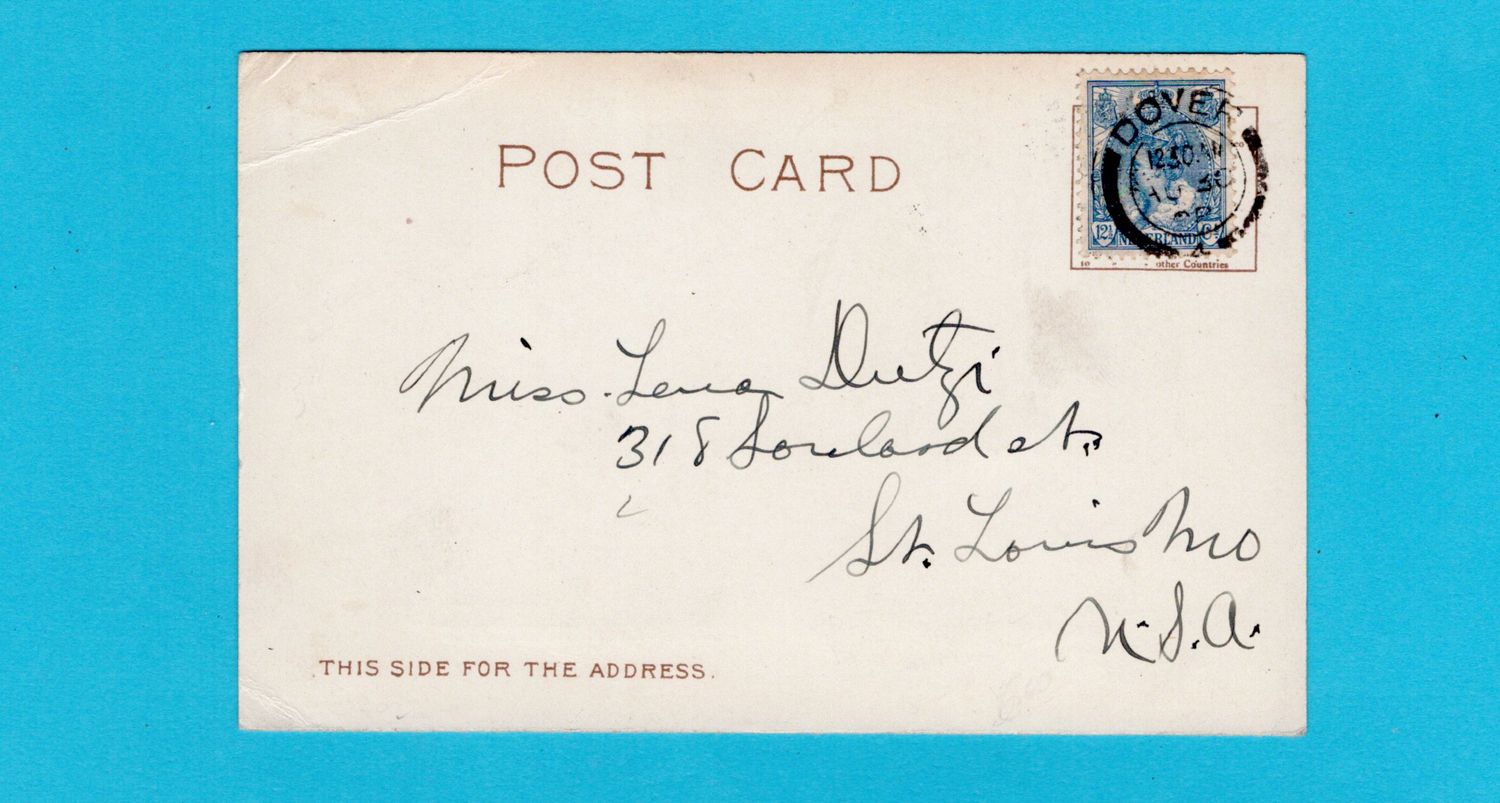 POST CARD
DOVER
12½ NEDERLAND Ct
other Countries
Miss. Lena
318 Soulard st.
St. Louis Mo
U.S.A.
THIS SIDE FOR THE ADDRESS.